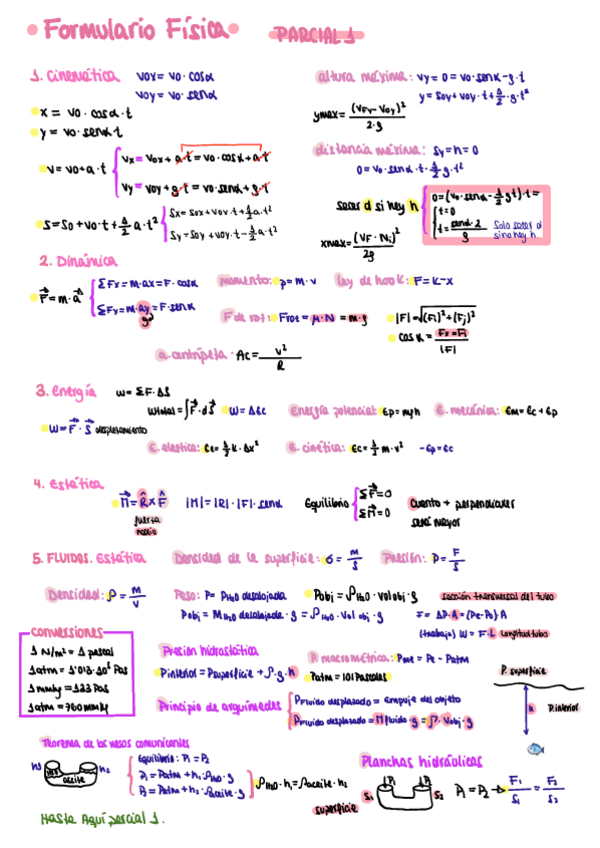 Formulario Física PARCIAL 1
1. Cinemática
vox = vo · cosα
voy = vo · senα
x = vo · cosα · t
y = vo · senα · t
v = vo + a · t
vx = vox + a·t = vo · cosα + a·t
vy = voy + g·t = vo · senα + g·t
s = so + vo · t + 1/2 a · t²
sx = sox + vox · t + 1/2 a · t²
sy = soy + voy · t - 1/2 a · t²
altura máxima: vy = 0 = vo · senα - g · t
y = soy + voy · t + 1/2 · g · t²
ymax = (vFy - voy)² / 2·g
distancia máxima: sy = h = 0
0 = vo · senα · t - 1/2 g · t²
sacar d si hay h
0 = (vo · senα - 1/2 g t) · t =
t = 0
t = senα · 2 / g
Solo sacar d
si no hay h
xmax = (VF · Ni)² / 2g
2. Dinámica
F = m · a
ΣFx = m · ax = F · cosα
ΣFy = m · ay = F · senα
g
momento: p = m · v
ley de hook: F = k - x
F de roz: Froz = μ · N = m · g
|F| = √(Fi)² + (Fj)²
cos α = Fx = Fi / |F|
a. centrípeta · Ac = v² / R
3. energía
w = ΣF · ΔS
wtotal = ∫ F · dS
W = ΔEc
W = F · S desplazamiento
energía potencial: Ep = mgh
E. mecánica: Em = Ec + Ep
E. elastica: Ee = 1/2 k · Δx²
e. cinética: Ec = 1/2 m · v²
-Ep = Ec
4. estática
M = R × F
fuerza
radio
|M| = |R| · |F| · senα
Equilibrio
ΣF = 0
ΣM = 0
cuanto + perpendicular
será mayor
5. FLUIDOS. Estática
Densidad de la superficie: σ = m / S
Presión: P = F / S
Densidad: ρ = M / V
Peso: P = PH2O desalojada
Pobj = ρH2O · Vol obj · g
sección transversal del tubo
Pobj = MH2O desalojada · g = ρH2O · Vol obj · g
F = ΔP · A = (Pe - Po) · A
(trabajo) W = F · L longitud tubo
conversiones
1 N/m² = 1 pascal
1 atm = 1'013 · 10⁵ Pas
1 mmHg = 133 Pas
1 atm = 760 mmHg
Presión hidrostática
Pinterior = Psuperficie + ρ · g · h
P. macrométrica: Pme = Pe - Patm
Patm = 101 Pascales
P. superficie
h
P. interior
Principio de arquímedes
Pfluido desplazado = empuje del objeto
Pfluido desplazado = Mfluido · g = ρ · Vobj · g
Teorema de los vasos comunicantes
h1
h2
aceite
Equilibrio: P1 = P2
P1 = Patm + h1 · ρH2O · g
P2 = Patm + h2 · ρaceite · g
ρH2O · h1 = ρaceite · h2
Planchas hidráulicas
superficie
S1
P1
P2
S2
P1 = P2 → F1 / S1 = F2 / S2
Hasta Aquí parcial 1.